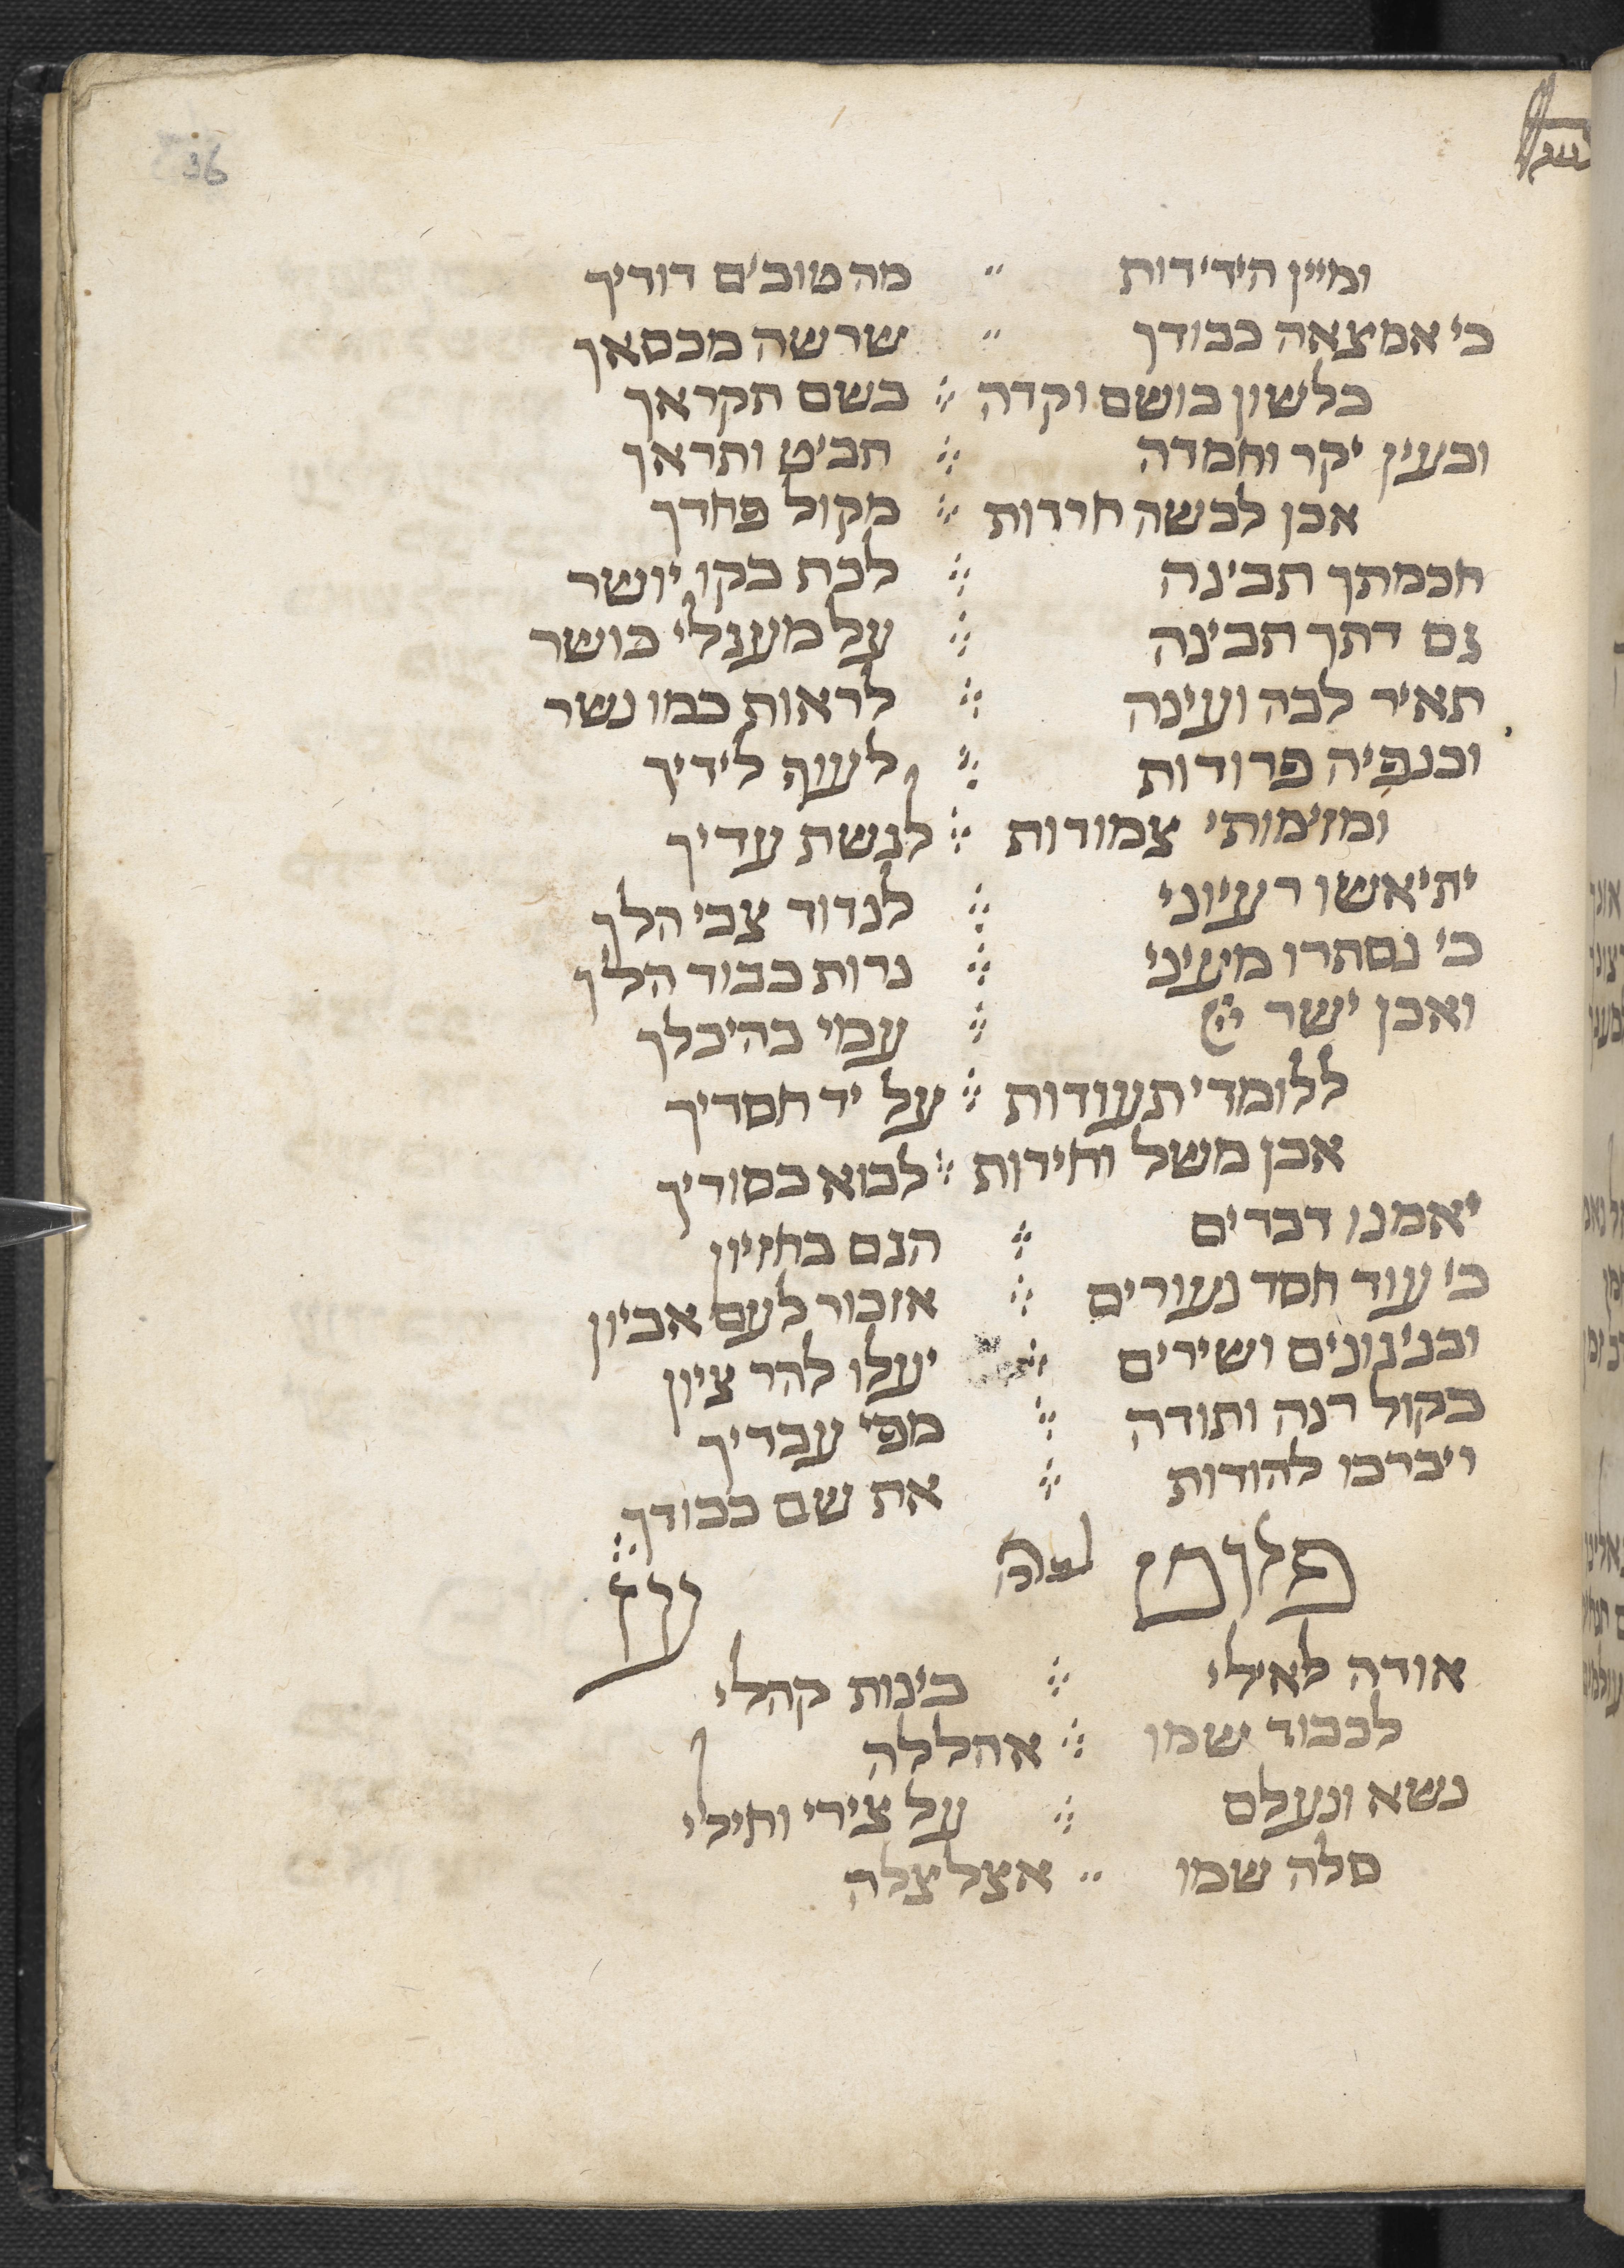 36
ומיין הידידות ״ מה טובים דודיך
כי אמצאה כבודך ״ שרשה מכסאך
כלשון בושם וקדה ∴ בשם תקראך
ובעין יקר וחמדה ∴ תביט ותראך
אכן לבשה חרדות ∴ מקול פחדך
חכמתך תבינה ∴ לכת בקו יושר
גם דתך תבינה ∴ על מעגלי כושר
תאיר לבה ועינה ∴ לראות כמו נשר
וכנפיה פרודות ∴ לעוף לידיך
ומזימותי צמודות ∴ לגשת עדיך
יתיאשו רעיוני ∴ לנדוד צבי הלך
כי נסתרו מעיני ∴ נרות כבוד הלך
ואכן ישר ∴ עמי בהיכלך
ללומדי תעודות ∴ על יד חסדיך
אבן משל וחידות ∴ לבוא בסודיך
יאמנו דברים ∴ הנם בחזיון
כי עוד חסד נעורים ∴ אזכור לעם אביון
ובניגונים ושירים ∴ יעלו להר ציון
בקול רנה ותודה ∴ מפי עבדיך
ויברכו להודות ∴ את שם כבודך
אודה לאילי ∴ בינות קהלי
לכבוד שמו ∴ אהללה
נשא ונעלם ∴ על צירי וחילי
סלה שמו ״ אצלצלה